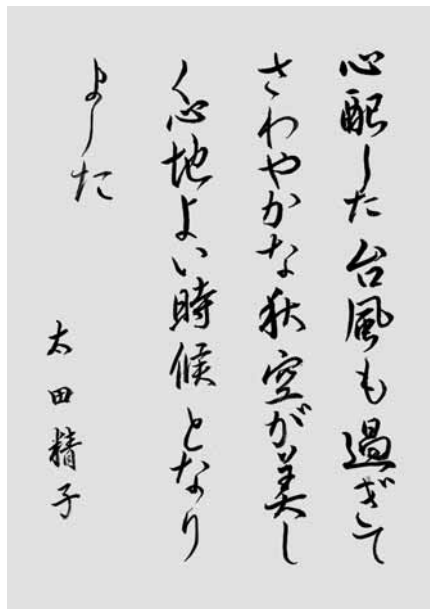 心配した台風も過ぎて
さわやかな秋空が美し
く心地よい時候となり
ました
太田精子